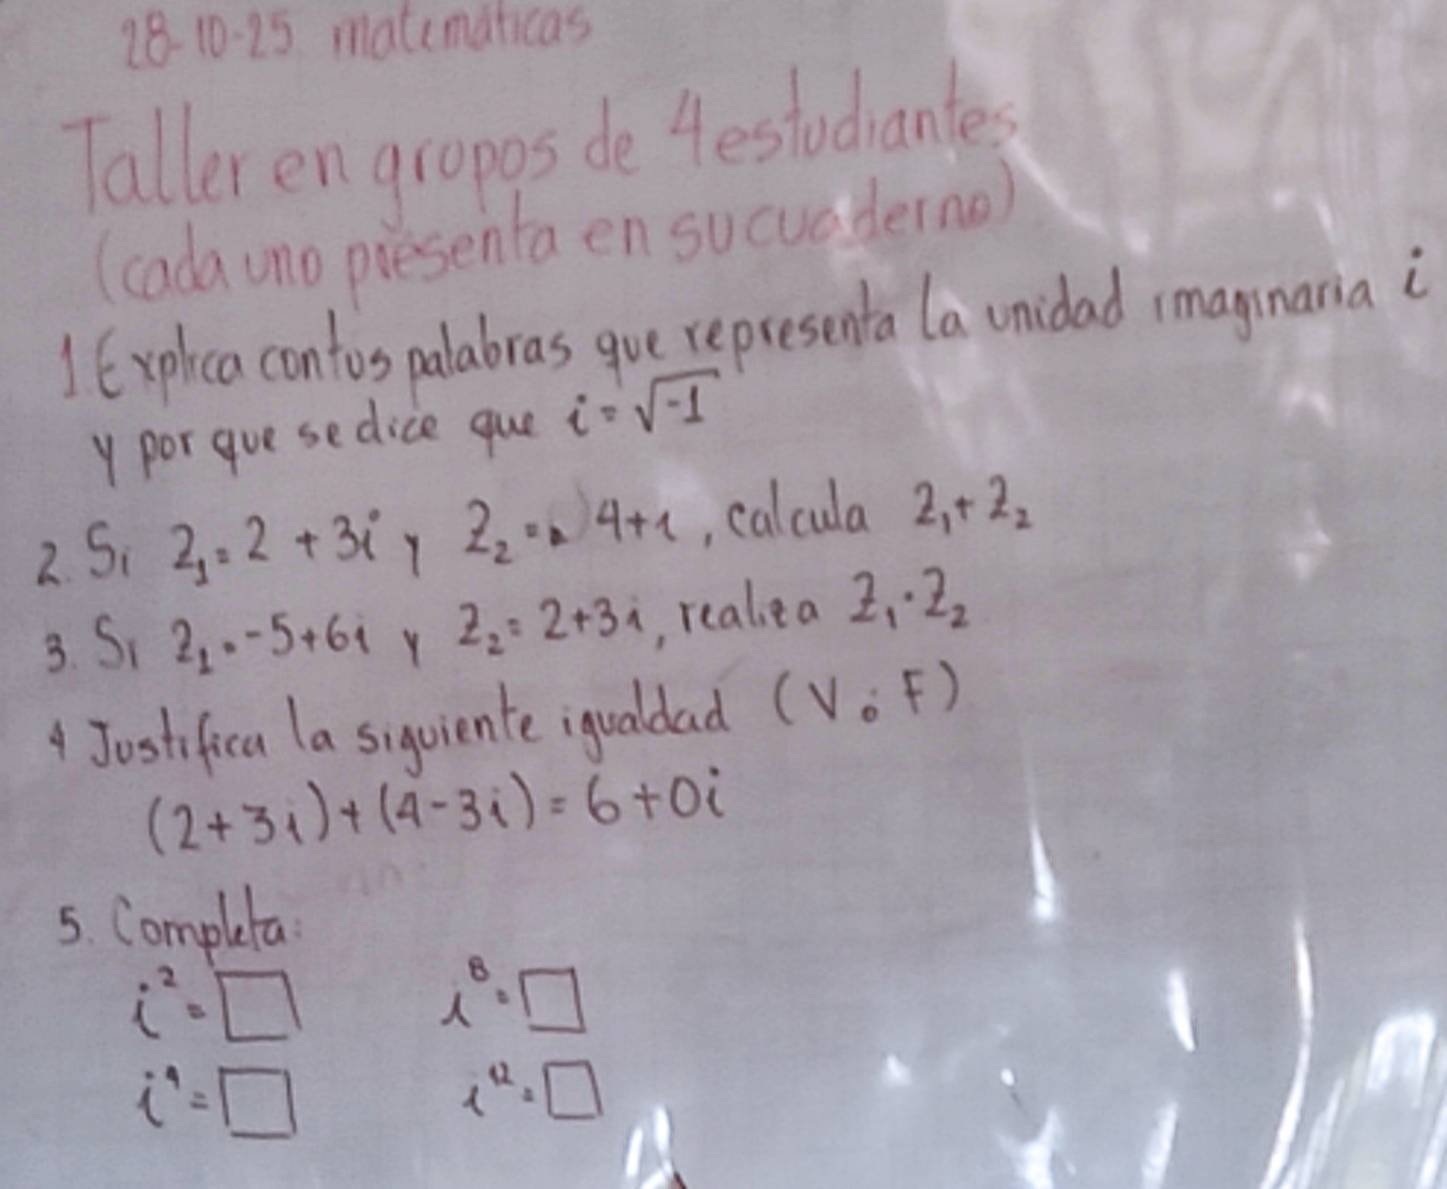 28-10-25 matemáticas
Taller en gropos de 4 estudiantes
(cada uno presenta en su cuaderno)
1. Explica con tus palabras que representa la unidad imaginaria i
y por que se dice que i = √-1
2. Si Z₁ = 2 + 3i y Z₂ = 4+i, calcula Z₁ + Z₂
3. Si Z₁ = -5+6i y Z₂ = 2+3i, realiza Z₁ · Z₂
4 Justifica la siguiente igualdad (V ó F)
(2+3i)+(4-3i) = 6+0i
5. Completa:
i² = □ i⁸ = □
i⁴ = □ i¹² = □